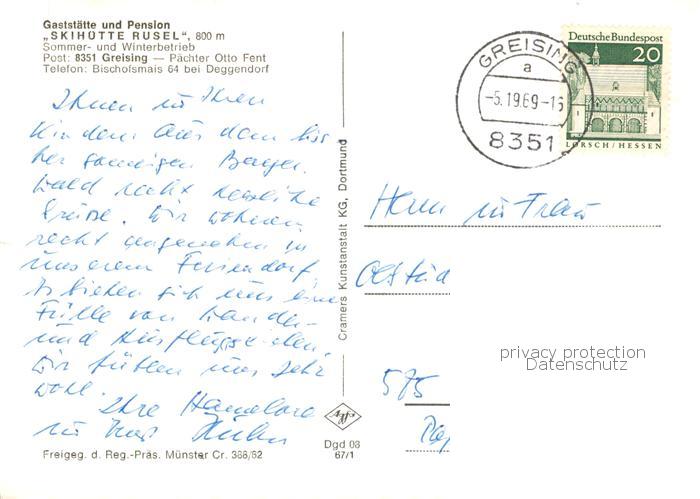 Gaststätte und Pension
„SKIHÜTTE RUSEL", 800 m
Sommer- und Winterbetrieb
Post: 8351 Greising — Pächter Otto Fent
Telefon: Bischofsmais 64 bei Deggendorf
Ihnen u Ihren
Kindern aus dem bis
her sonnigen Bayer.
wald recht herzliche
Grüße. Wir wohnen
recht angenehm in
unserem Feriendorf.
Es bieten sich uns eine
Fülle von Wander-
und Ausflugszielen.
Wir fühlen uns sehr
wohl.
Ihre Hannelore
u
Freigeg. d. Reg.-Präs. Münster Cr. 388/62
Cramers Kunstanstalt KG, Dortmund
Agfa
Dgd 08
67/1
GREISING
a
-5.1969-16
8351
Deutsche Bundespost
20
LORSCH/HESSEN
Herrn u Frau
575
privacy protection
Datenschutz